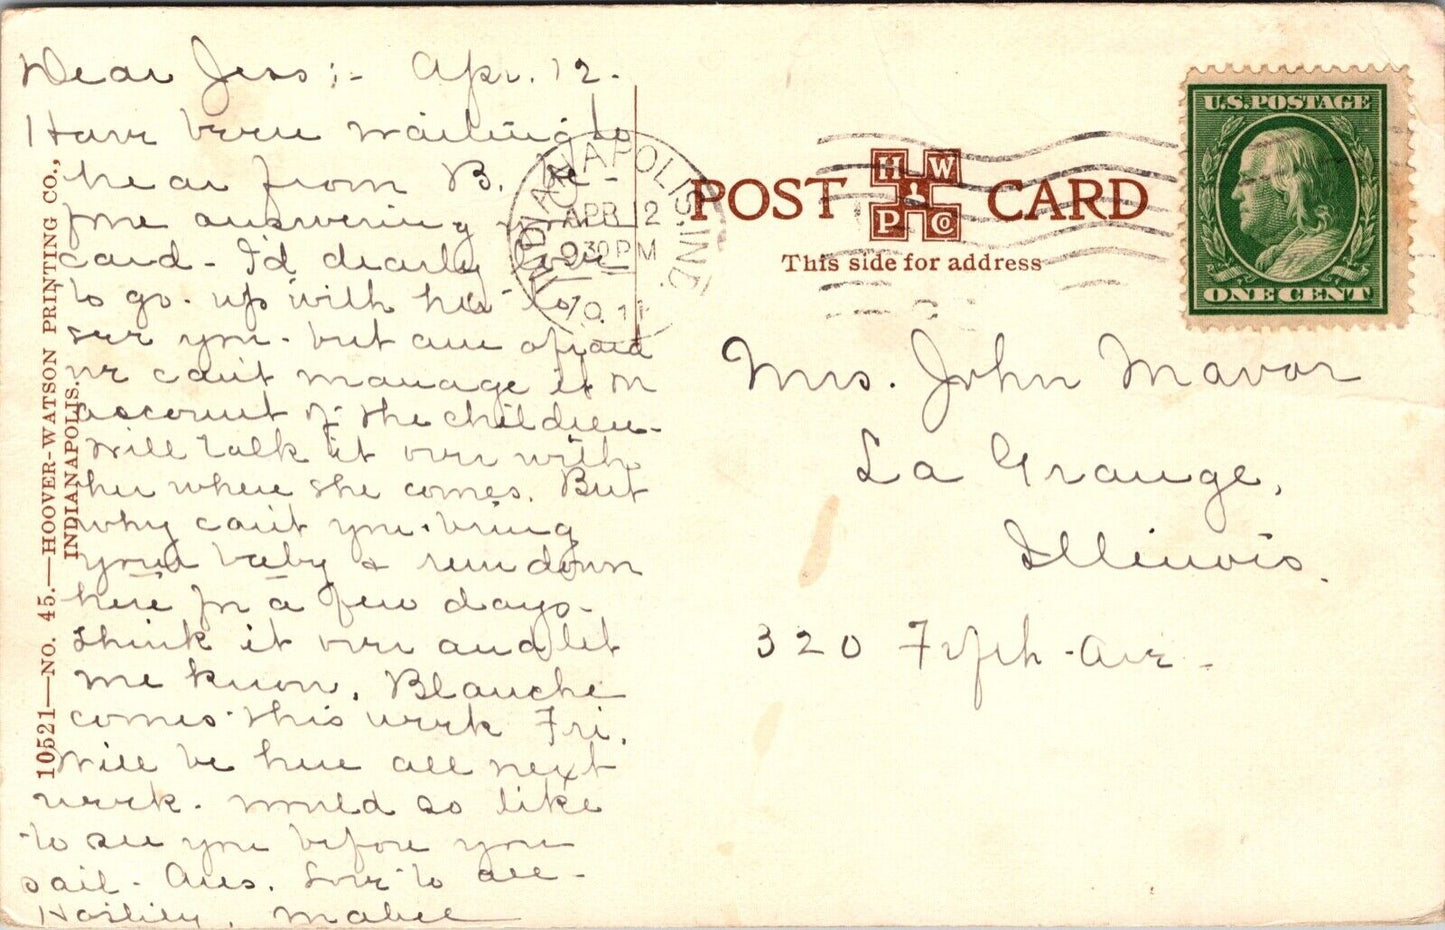 Dear Jess;- Apr. 12.
Have been waiting to
hear from B. be-
fore answering your
card - I'd dearly love
to go up with her to
see you - but am afraid
we can't manage it on
account of the children -
Will talk it over with
her when she comes. But
why can't you bring
your baby & run down
here for a few days -
think it over and let
me know. Blanche
comes this week Fri.
Will be here all next
week. would so like
to see you before you
sail - Ans. Love to all -
Hastily, Mabel
10521—NO. 45.—HOOVER-WATSON PRINTING CO.,
INDIANAPOLIS.
INDIANAPOLIS, IND.
APR 12
930 PM
POST CARD
H W
P CO
This side for address
U.S. POSTAGE
ONE CENT
Mrs. John Mavor
La Grange,
Illinois.
320 Fifth Ave -